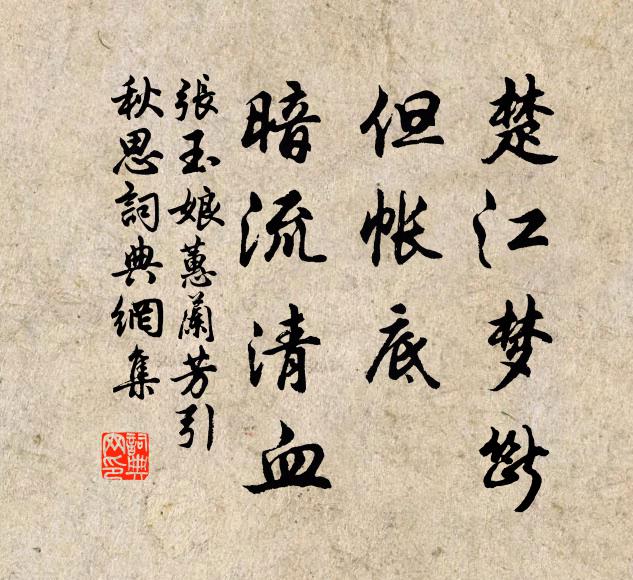 楚江梦断
但帐底
暗流清血
張玉娘蕙蘭芳引
秋思詞典網集
詞典網印